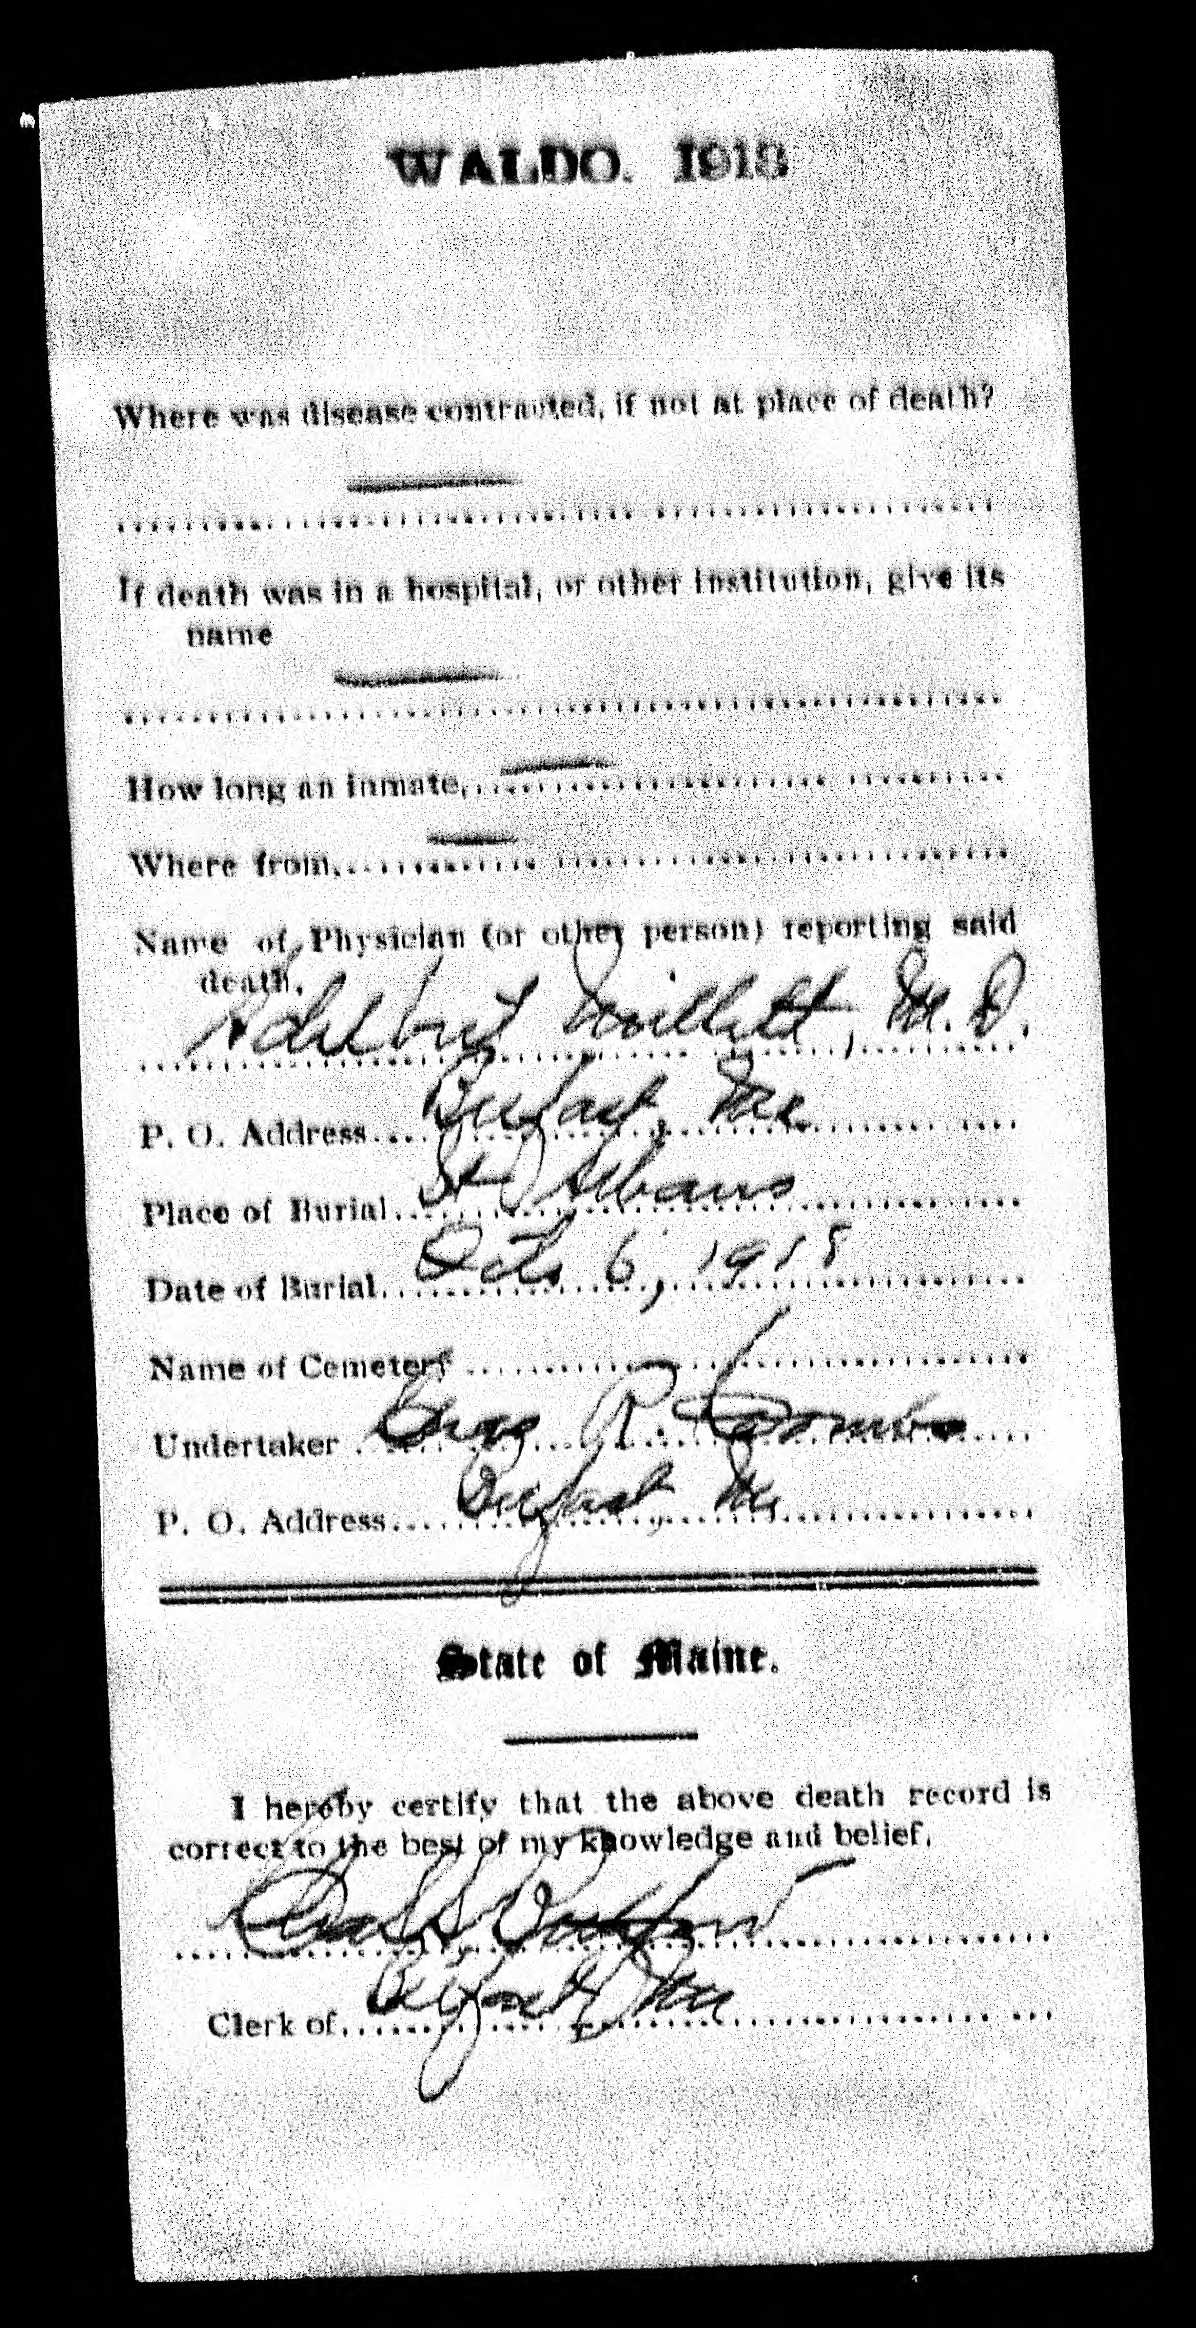 WALDO. 1918
Where was disease contracted, if not at place of death?
If death was in a hospital, or other institution, give its
name
How long an inmate,
Where from,
Name of Physician (or other person) reporting said
death,
Adelbert Millett, M.D.
P. O. Address Belfast, Me.
Place of Burial St Albans
Date of Burial Oct. 6, 1918
Name of Cemetery
Undertaker Chas R. Coombs
P. O. Address Belfast, Me,
State of Maine.
I hereby certify that the above death record is
correct to the best of my knowledge and belief,
Clerk of Belfast, Me